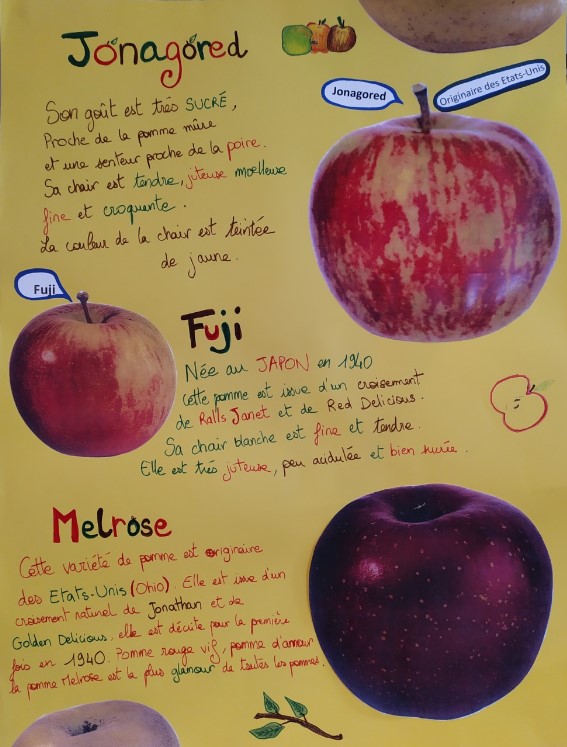 Jonagored
Son goût est très SUCRÉ,
Proche de la pomme mûre
et une senteur proche de la poire.
Sa chair est tendre, juteuse moelleuse
fine et croquante.
La couleur de la chair est teintée
de jaune.
Jonagored
Originaire des Etats-Unis
Fuji
Fuji
Née au JAPON en 1940
Cette pomme est issue d'un croisement
de Ralls Janet et de Red Delicious.
Sa chair blanche est fine et tendre.
Elle est très juteuse, peu acidulée et bien sucrée.
Melrose
Cette variété de pomme est originaire
des Etats-Unis (Ohio). Elle est issue d'un
croisement naturel de Jonathan et de
Golden Delicious, elle est décrite pour la première
fois en 1940. Pomme rouge vif, pomme d'amour
la pomme Melrose est la plus glamour de toutes les pommes.